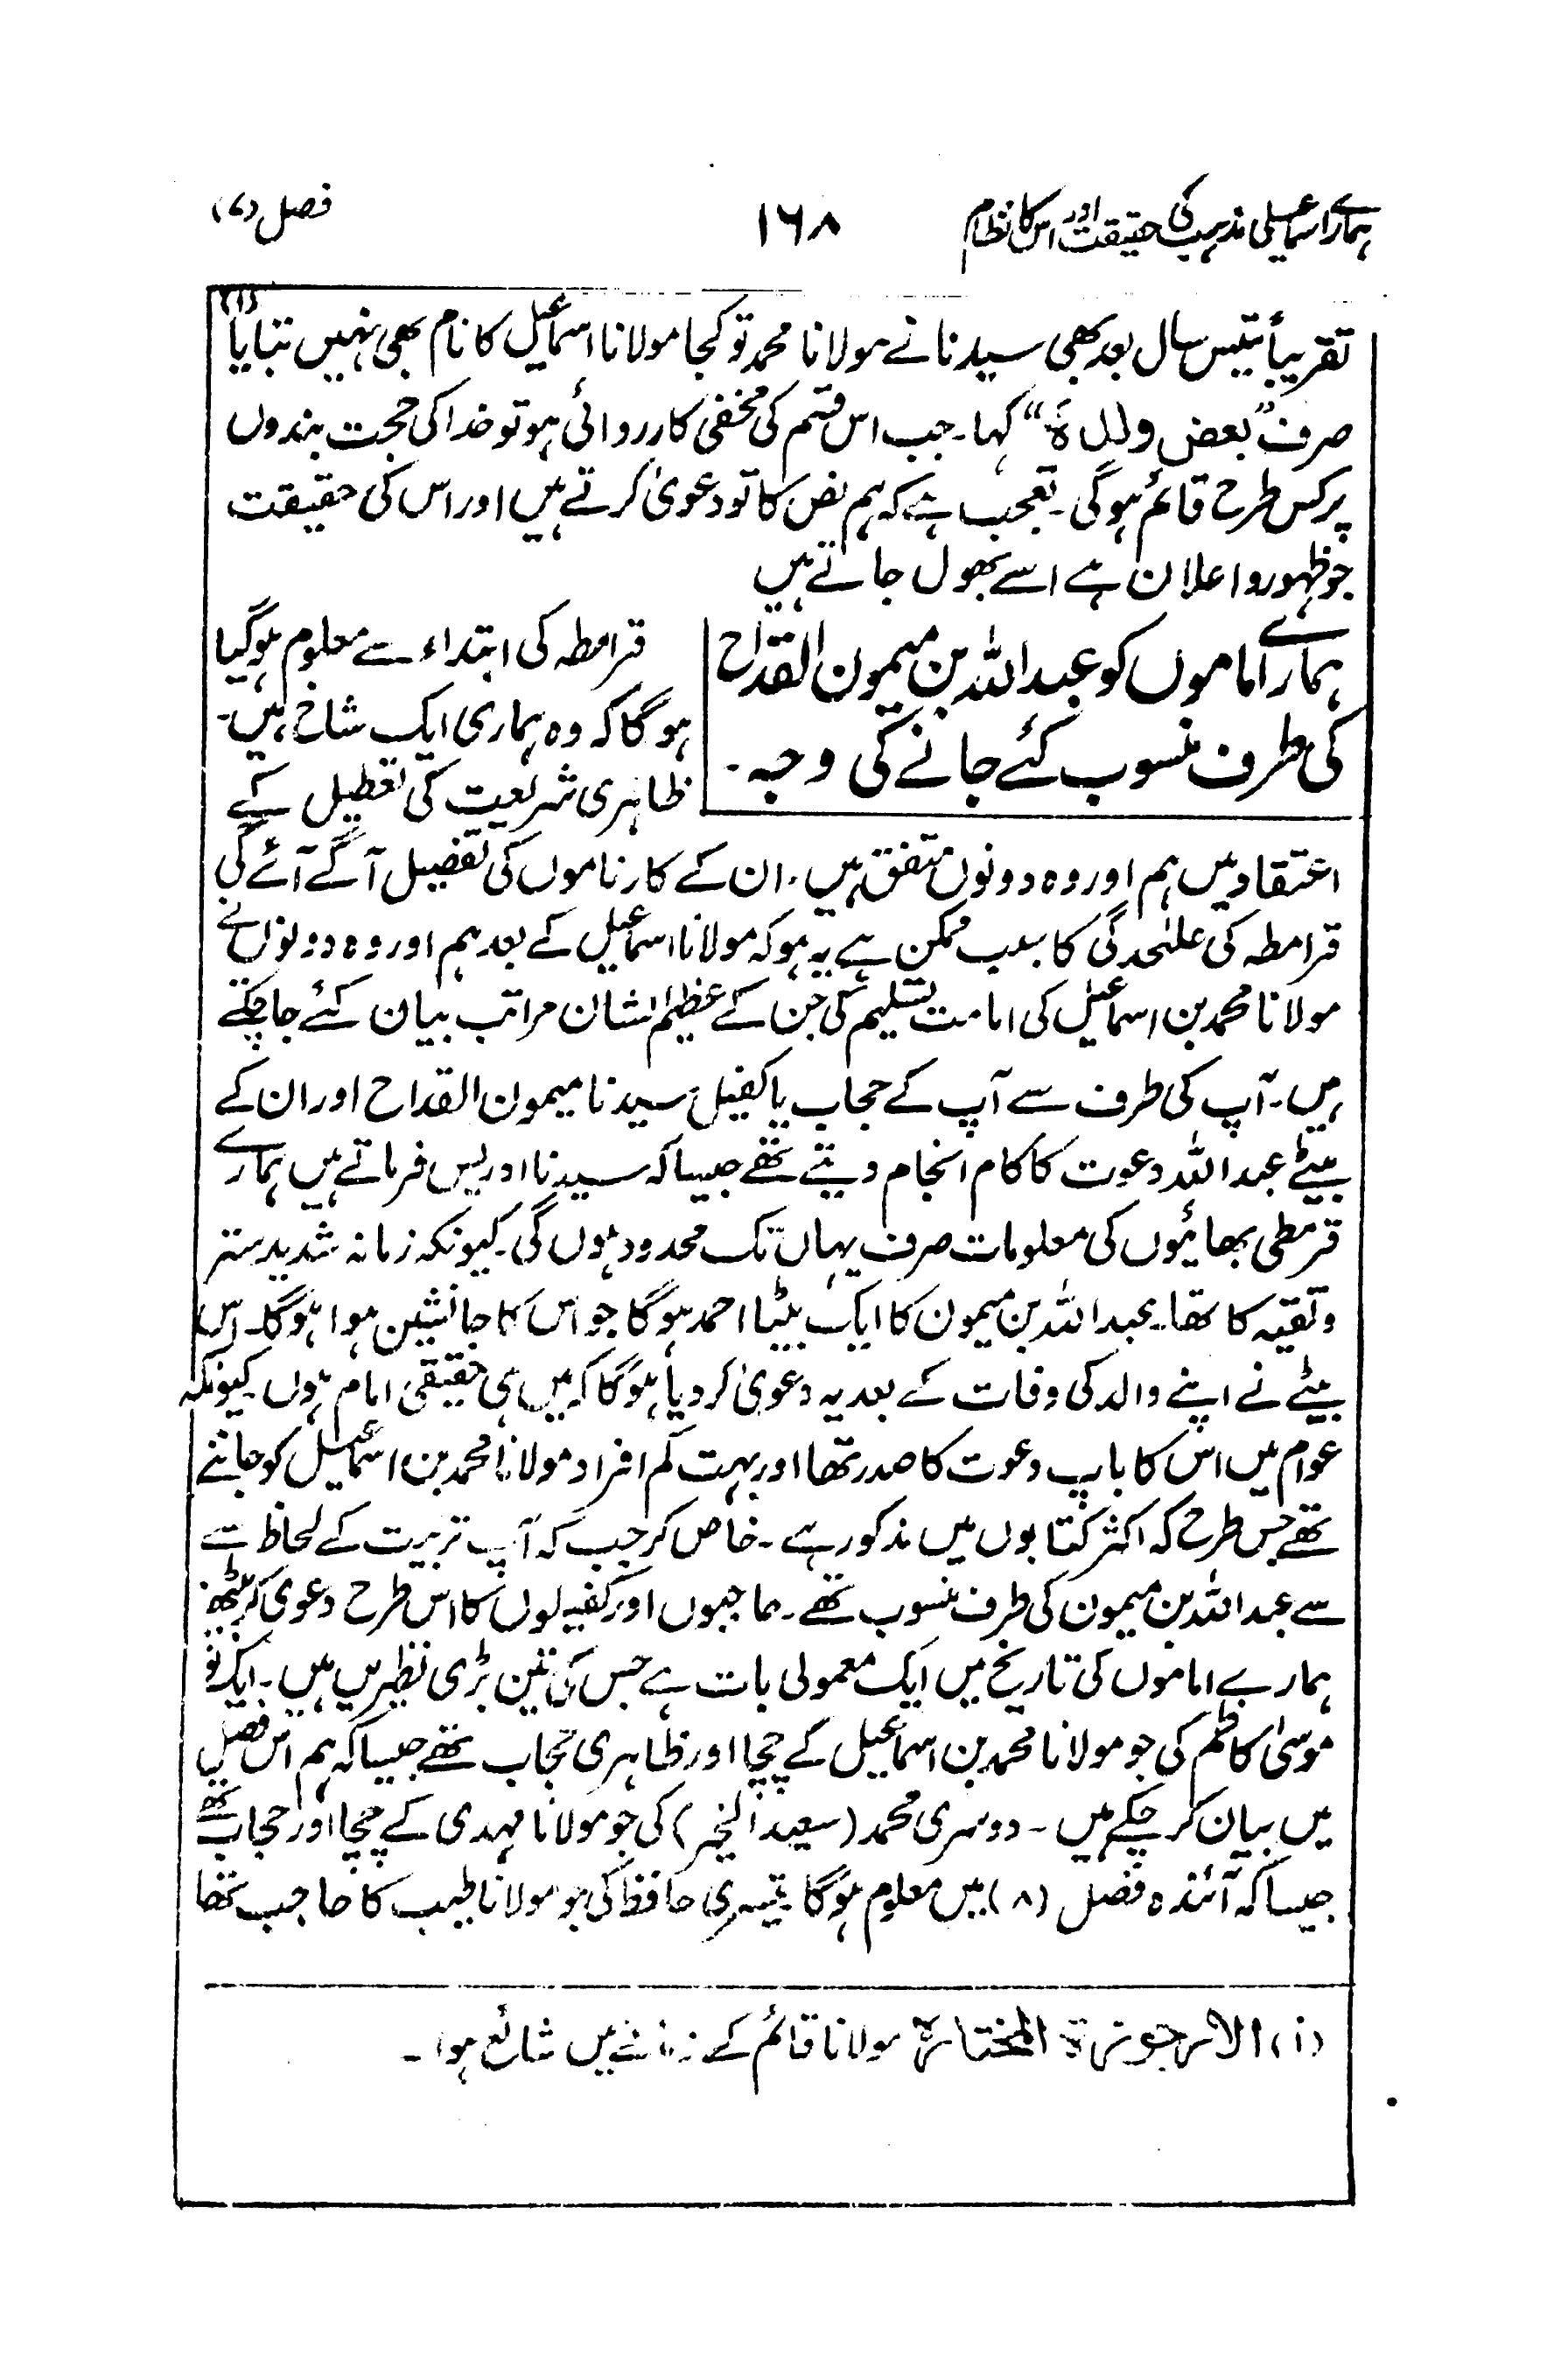 ہمارے اسماعیلی مذہب کی حقیقت اور اس کا نظام ۱۶۸ فصل (۷)
تقریباً تیس سال بعد بھی سیدنا نے مولانا محمد تو کجا مولانا اسماعیل کا نام بھی نہیں بتایا (۱)
صرف ”بعض ولدہ“ کہا۔ جب اس قسم کی مخفی کارروائی ہو تو خدا کی حجت بندوں
پر کس طرح قائم ہوگی۔ تعجب ہے کہ ہم نص کا تو دعویٰ کرتے ہیں اور اس کی حقیقت
جو ظہور و اعلان ہے اسے بھول جاتے ہیں
ہمارے اماموں کو عبداللہ بن میمون القداح
کی طرف منسوب کئے جانے کی وجہ۔
قرامطہ کی ابتداء سے معلوم ہوگیا
ہوگا کہ وہ ہماری ایک شاخ ہیں۔
ظاہری شریعت کی تعطیل کے
اعتقاد میں ہم اور وہ دونوں متفق ہیں۔ ان کے کارناموں کی تفصیل آگے آئے گی
قرامطہ کی علٰحدگی کا سبب ممکن ہے یہ ہو کہ مولانا اسماعیل کے بعد ہم اور وہ دونوں نے
مولانا محمد بن اسماعیل کی امامت تسلیم کی جن کے عظیم الشان مراتب بیان کئے جاچکے
ہیں۔ آپ کی طرف سے آپ کے حجاب یا کفیل سیدنا میمون القداح اور ان کے
بیٹے عبداللہ دعوت کا کام انجام دیتے تھے جیسا کہ سیدنا ادریس فرماتے ہیں ہمارے
قرمطی بھائیوں کی معلومات صرف یہاں تک محدود ہوں گی۔ کیونکہ زمانہ شدید ستر
و تقیہ کا تھا۔ عبداللہ بن میمون کا ایک بیٹا احمد ہوگا جو اس کا جانشین ہوا ہوگا۔ اس
بیٹے نے اپنے والد کی وفات کے بعد یہ دعویٰ کردیا ہوگا کہ میں ہی حقیقی امام ہوں۔ کیونکہ
عوام میں اس کا باپ دعوت کا صدر تھا اور بہت کم افراد مولانا محمد بن اسماعیل کو جانتے
تھے جس طرح کہ اکثر کتابوں میں مذکور ہے۔ خاص کر جب کہ آپ تربیت کے لحاظ سے
سے عبداللہ بن میمون کی طرف منسوب تھے۔ حاجبوں اور کفیلوں کا اس طرح دعویٰ کر بیٹھنا
ہمارے اماموں کی تاریخ میں ایک معمولی بات ہے جس کی تین بڑی نظیریں ہیں۔ ایک تو
موسیٰ کاظم کی جو مولانا محمد بن اسماعیل کے چچا اور ظاہری حجاب تھے جیسا کہ ہم اس فصل
میں بیان کرچکے ہیں۔ دوسری محمد (سعید الخیر) کی جو مولانا مہدی کے چچا اور حجاب تھے
جیسا کہ آئندہ فصل (۸) میں معلوم ہوگا۔ تیسری حافظ کی جو مولانا طیب کا حاجب تھا
(۱) الارجوزۃ المختارۃ مولانا قائم کے زمانے میں شائع ہوا۔